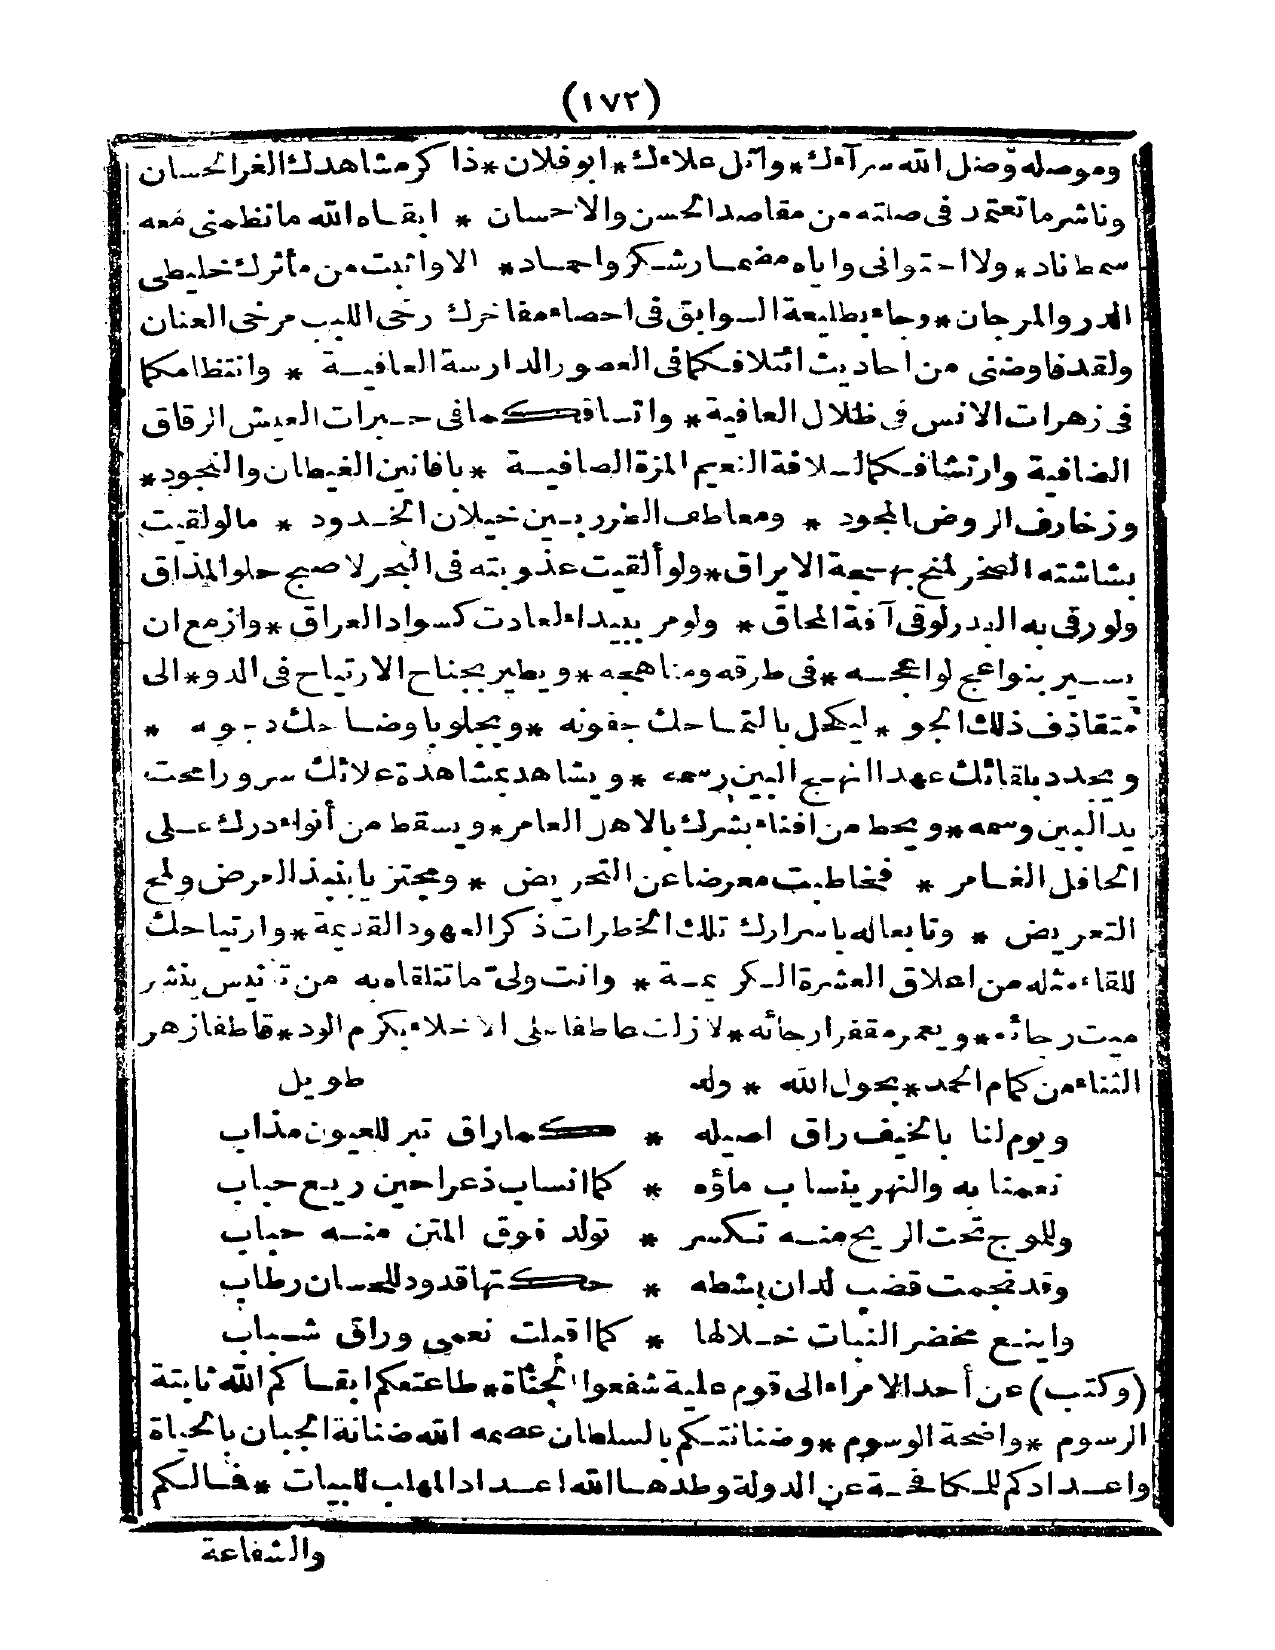 (١٧٢)
وموصله وصل الله سرآءك * وأثل علاءك * ابو فلان * ذا كر مشاهدك الغر الحسان
وناشر ما تعتمد في صلته من مقاصد الحسن والاحسان * ابقاه الله ما نظمنى معه
سمط ناد * ولا احتوانى واياه مضمار شكر واحماد * الا واثبت من مأثرك خليطى
الدر والمرجان * وجاء بطليعة السوابق فى احصاء مفاخرك رخى اللبب مرخى العنان
ولقد فاوضنى من احاديث ائتلافكما فى العصور الدارسة العافية * وانتظامكما
فى زهرات الانس فى ظلال العافية * واتساقكما فى حبرات العيش الرقاق
الضافية وارتشافكما لسلافة النعيم المزة الصافية * بافانين الغيطان والنجود *
وزخارف الروض المجود * ومعاطف الطرر بين خيلان الخدود * ما لو لقيت
بشاشته الصخر لمنح بهجة الايراق * ولو ألقيت عذوبته فى البحر لاصبح حلو المذاق
ولو رقى به البدر لوقى آفة المحاق * ولو مر ببيداء لعادت كسواد العراق * وازمع ان
يسير بنواعج لواعجه * فى طرقه ومناهجه * ويطير بجناح الارتياح فى الدو * الى
متقاذف ذلك الجو * ليكحل بالتماحك جفونه * ويجلو باوضاحك دجونه *
ويجدد بلقائك عهدا النهج البين رسمه * ويشاهد بمشاهدة علائك سرورا محت
يد البين وسمه * ويحط من افناء بشرك بالاهل العامر * ويسقط من أنواء درك على
الحافل الغامر * فخاطبت معرضا عن التحريض * ومجتزيا بنبذ العرض ولمح
التعريض * وتابعا له باسرارك تلك الخطرات ذكر العهود القديمة * وارتياحك
للقاء مثله من اعلاق العشرة الكريمة * وانت ولى ما تتلقاه به من تأنيس ينشر
ميت رجائه * ويعمر مقفر ارجائه * لازلت عاطفا على الاخلاء بكرم الود * قاطفا زهر
الثناء من كمام الحمد * بحول الله * وله طويل
ويوم لنا بالخيف راق اصيله * كما راق تبر للعيون مذاب
نعمنا به والنهر ينساب ماؤه * كما انساب ذعرا حين ريع حباب
وللموج تحت الريح منه تكسر * تولد فوق المتن منه حباب
وقد نجمت قضب لدان بشطه * حكتها قدود للحسان رطاب
واينع مخضر النبات خلالها * كما اقبلت نعمى وراق شباب
(وكتب) عن أحد الامراء الى قوم علية شفعوا لجناة * طاعتكم ابقاكم الله ثابتة
الرسوم * واضحة الوسوم * وضنانتكم بالسلطان عصمه الله ضنانة الجبان بالحياة
واعدادكم للمكافحة عن الدولة وطدها الله اعداد المهلب للبيات * فمالكم
والشفاعة